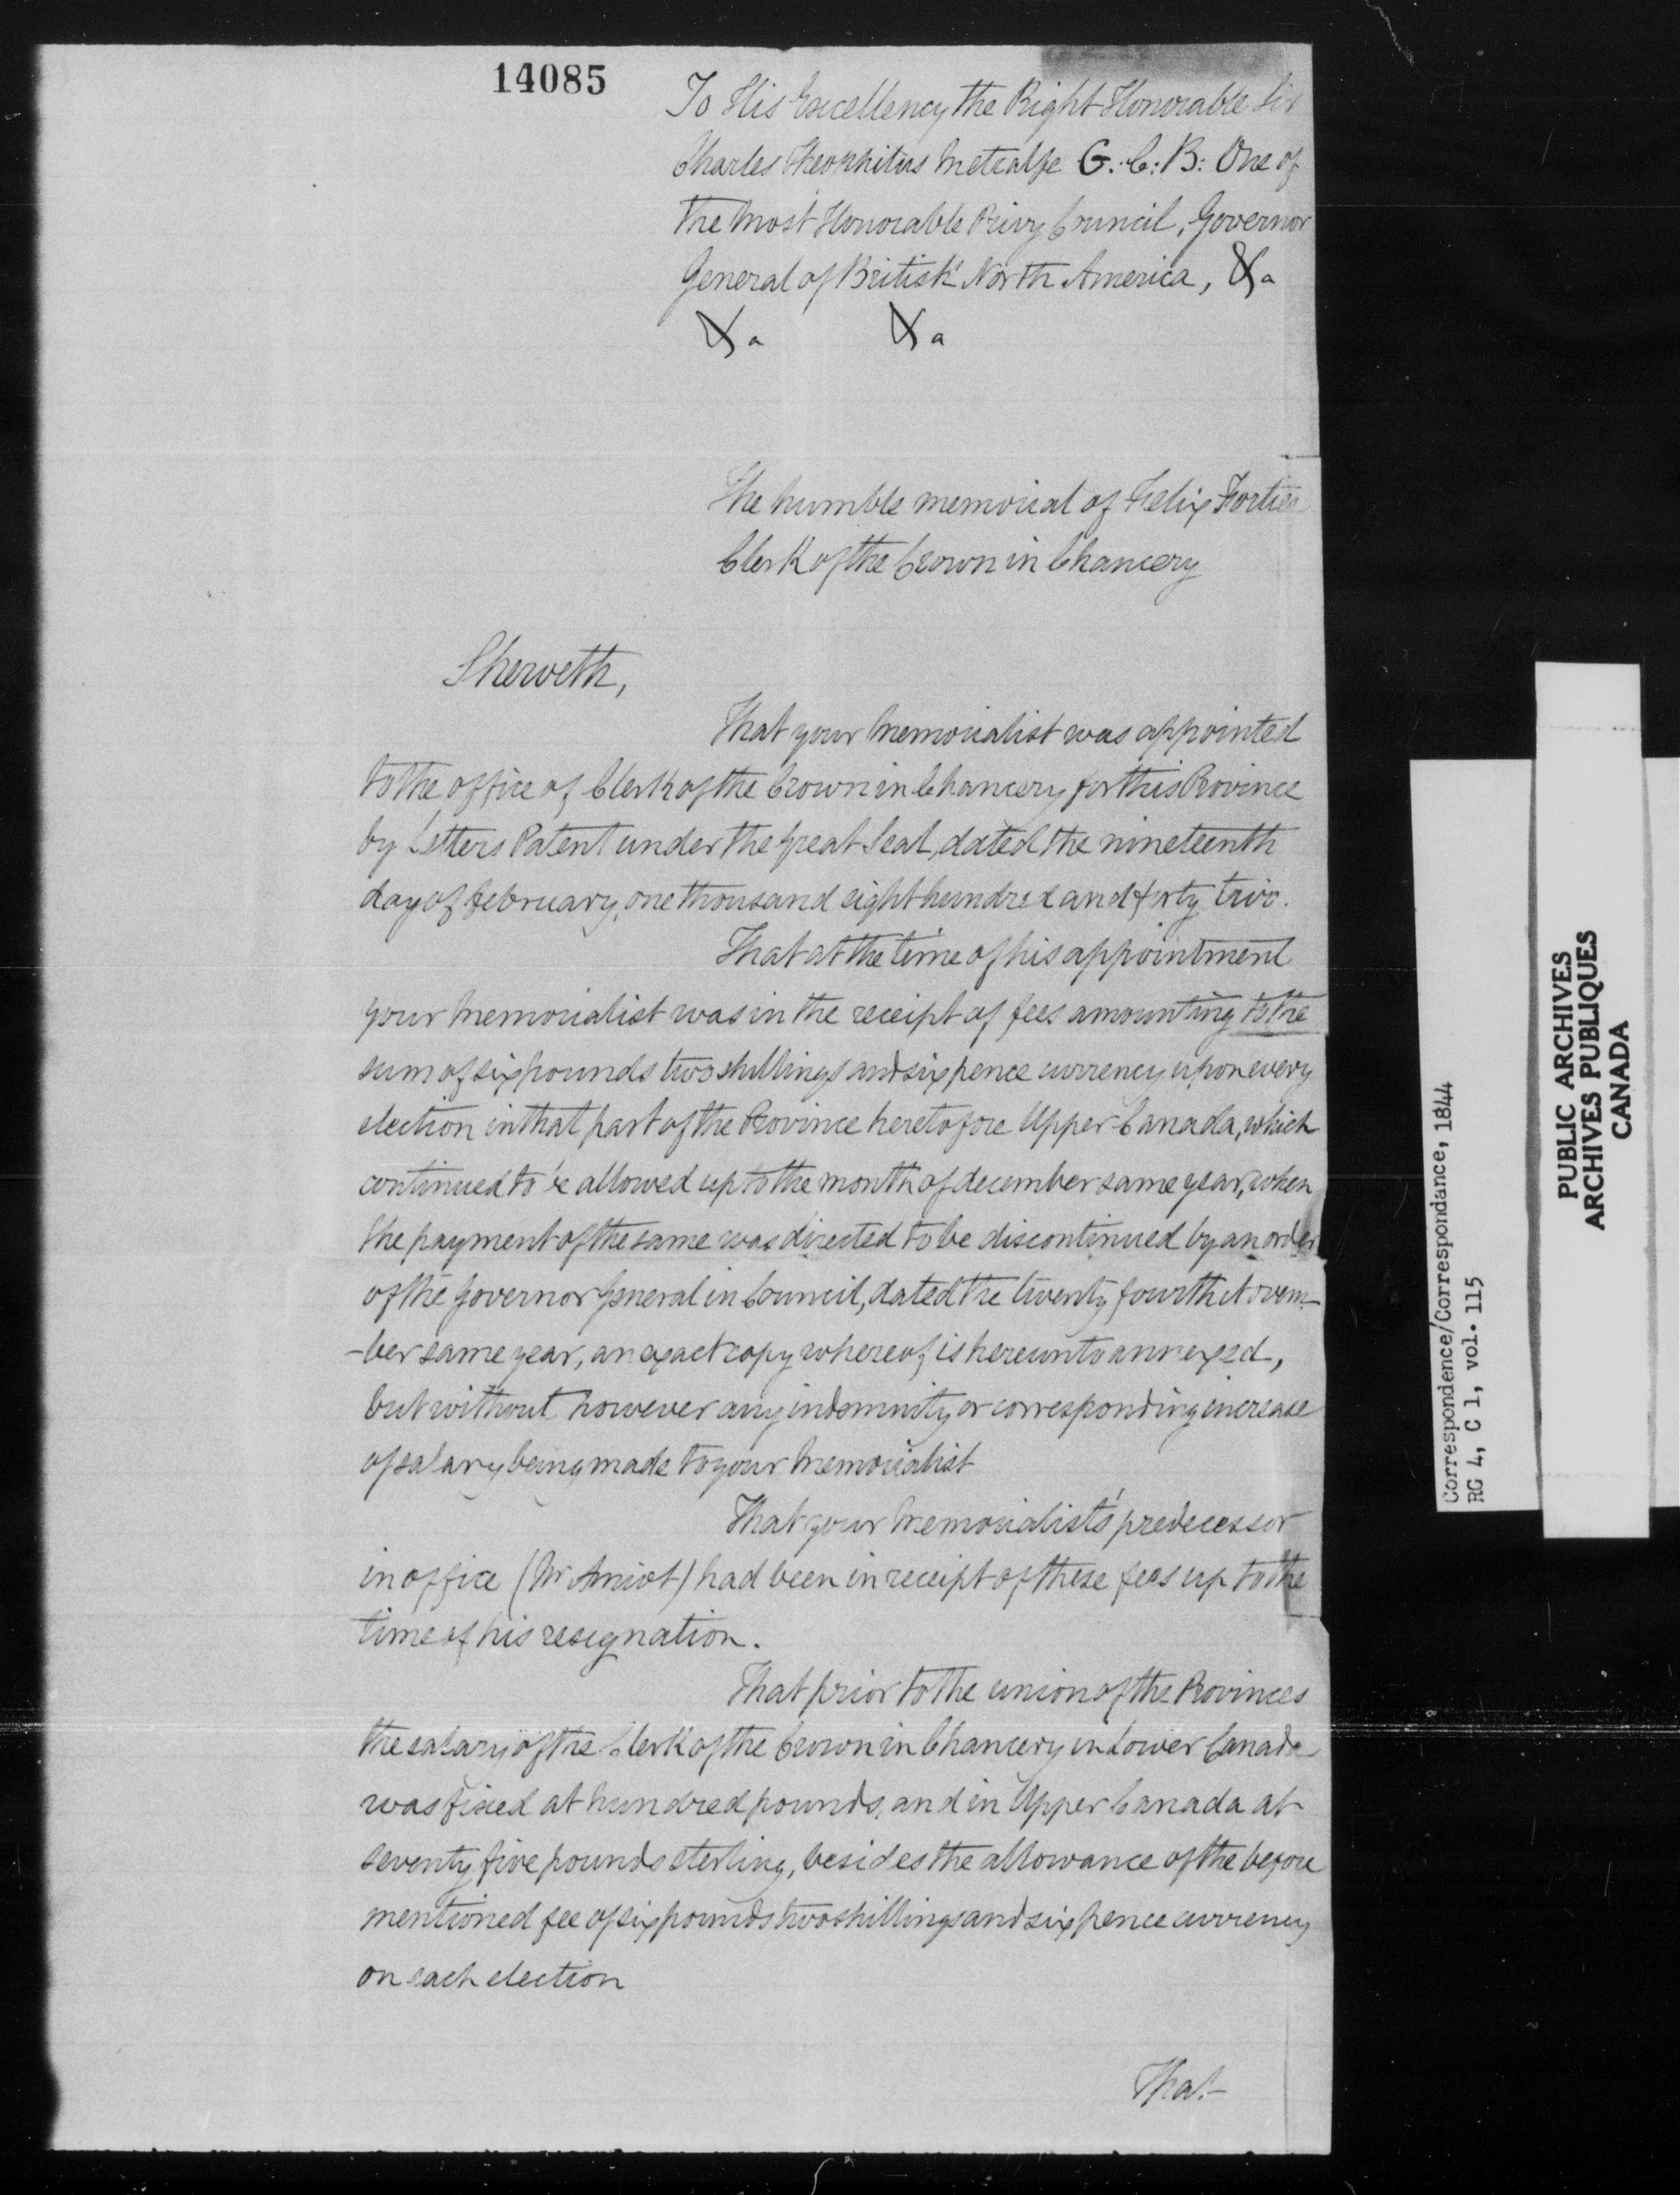 14085
To His Excellency the Right Honorable Sir
Charles Theophilus Metcalfe G. C: B: One of
the Most Honorable Privy Council, Governor
General of British North America, &a
&a &a
The humble memorial of Felix Fortier
Clerk of the Crown in Chancery
Sheweth,
That your Memorialist was appointed
to the office of Clerk of the Crown in Chancery for this Province
by Letters Patent under the Great Seal, dated the nineteenth
day of february, one thousand eight hundred and forty two.
That at the time of his appointment
your Memorialist was in the receipt of fees amounting to the
sum of six pounds two shillings and six pence currency upon every
election in that part of the Province heretofore Upper-Canada, which
continued to be allowed up to the month of december same year, when
the payment of the same was directed to be discontinued by an order
of the Governor General in Council, dated the twenty fourth Novem-
-ber same year, an exact copy whereof is hereunto annexed,
but without however any indemnity or corresponding increase
of salary being made to your Memorialist
That your Memorialist's predecessor
in office (Mr Amiot) had been in receipt of these fees up to the
time of his resignation.
That prior to the union of the Provinces
the salary of the Clerk of the Crown in Chancery in Lower Canada
was fixed at hundred pounds, and in Upper Canada at
seventy five pounds sterling, besides the allowance of the before
mentioned fee of six pounds two shillings and six pence currency
on each election
That
Correspondence/Correspondance, 1844
RG 4, C 1, vol. 115
PUBLIC ARCHIVES
ARCHIVES PUBLIQUES
CANADA